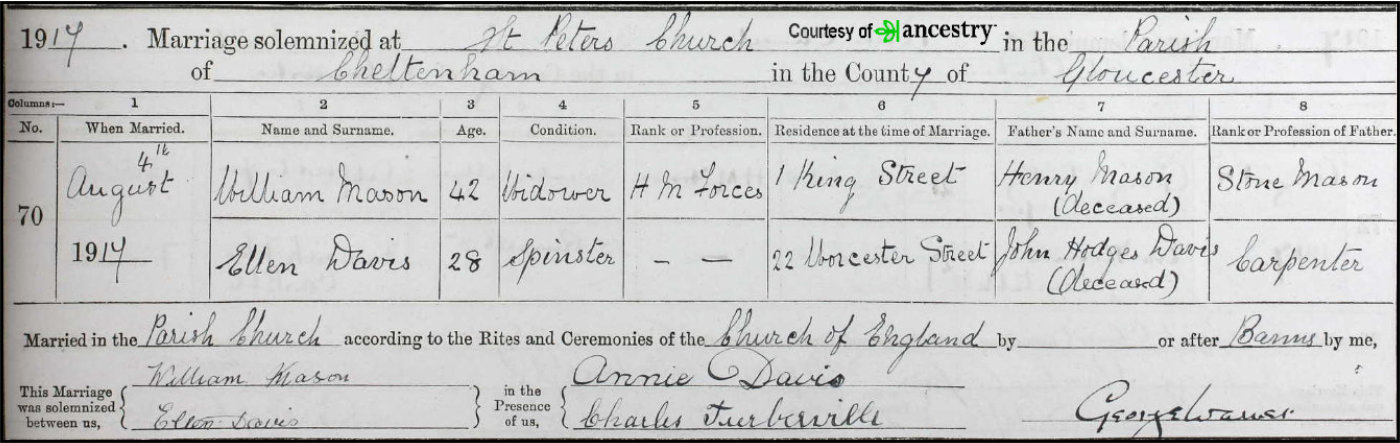 1917. Marriage solemnized at St Peters Church Courtesy of ancestry in the Parish
of Cheltenham in the County of Gloucester
Columns:— 1 2 3 4 5 6 7 8
No. When Married. Name and Surname. Age. Condition. Rank or Profession. Residence at the time of Marriage. Father's Name and Surname. Rank or Profession of Father.
70 August 4th William Mason 42 Widower H M Forces 1 King Street Henry Mason (deceased) Stone Mason
1917 Ellen Davis 28 Spinster – – 22 Worcester Street John Hodges Davis (deceased) Carpenter
Married in the Parish Church according to the Rites and Ceremonies of the Church of England by or after Banns by me,
This Marriage was solemnized between us, { William Mason } in the Presence of us, { Annie Davis
Ellen Davis Charles Turberville George